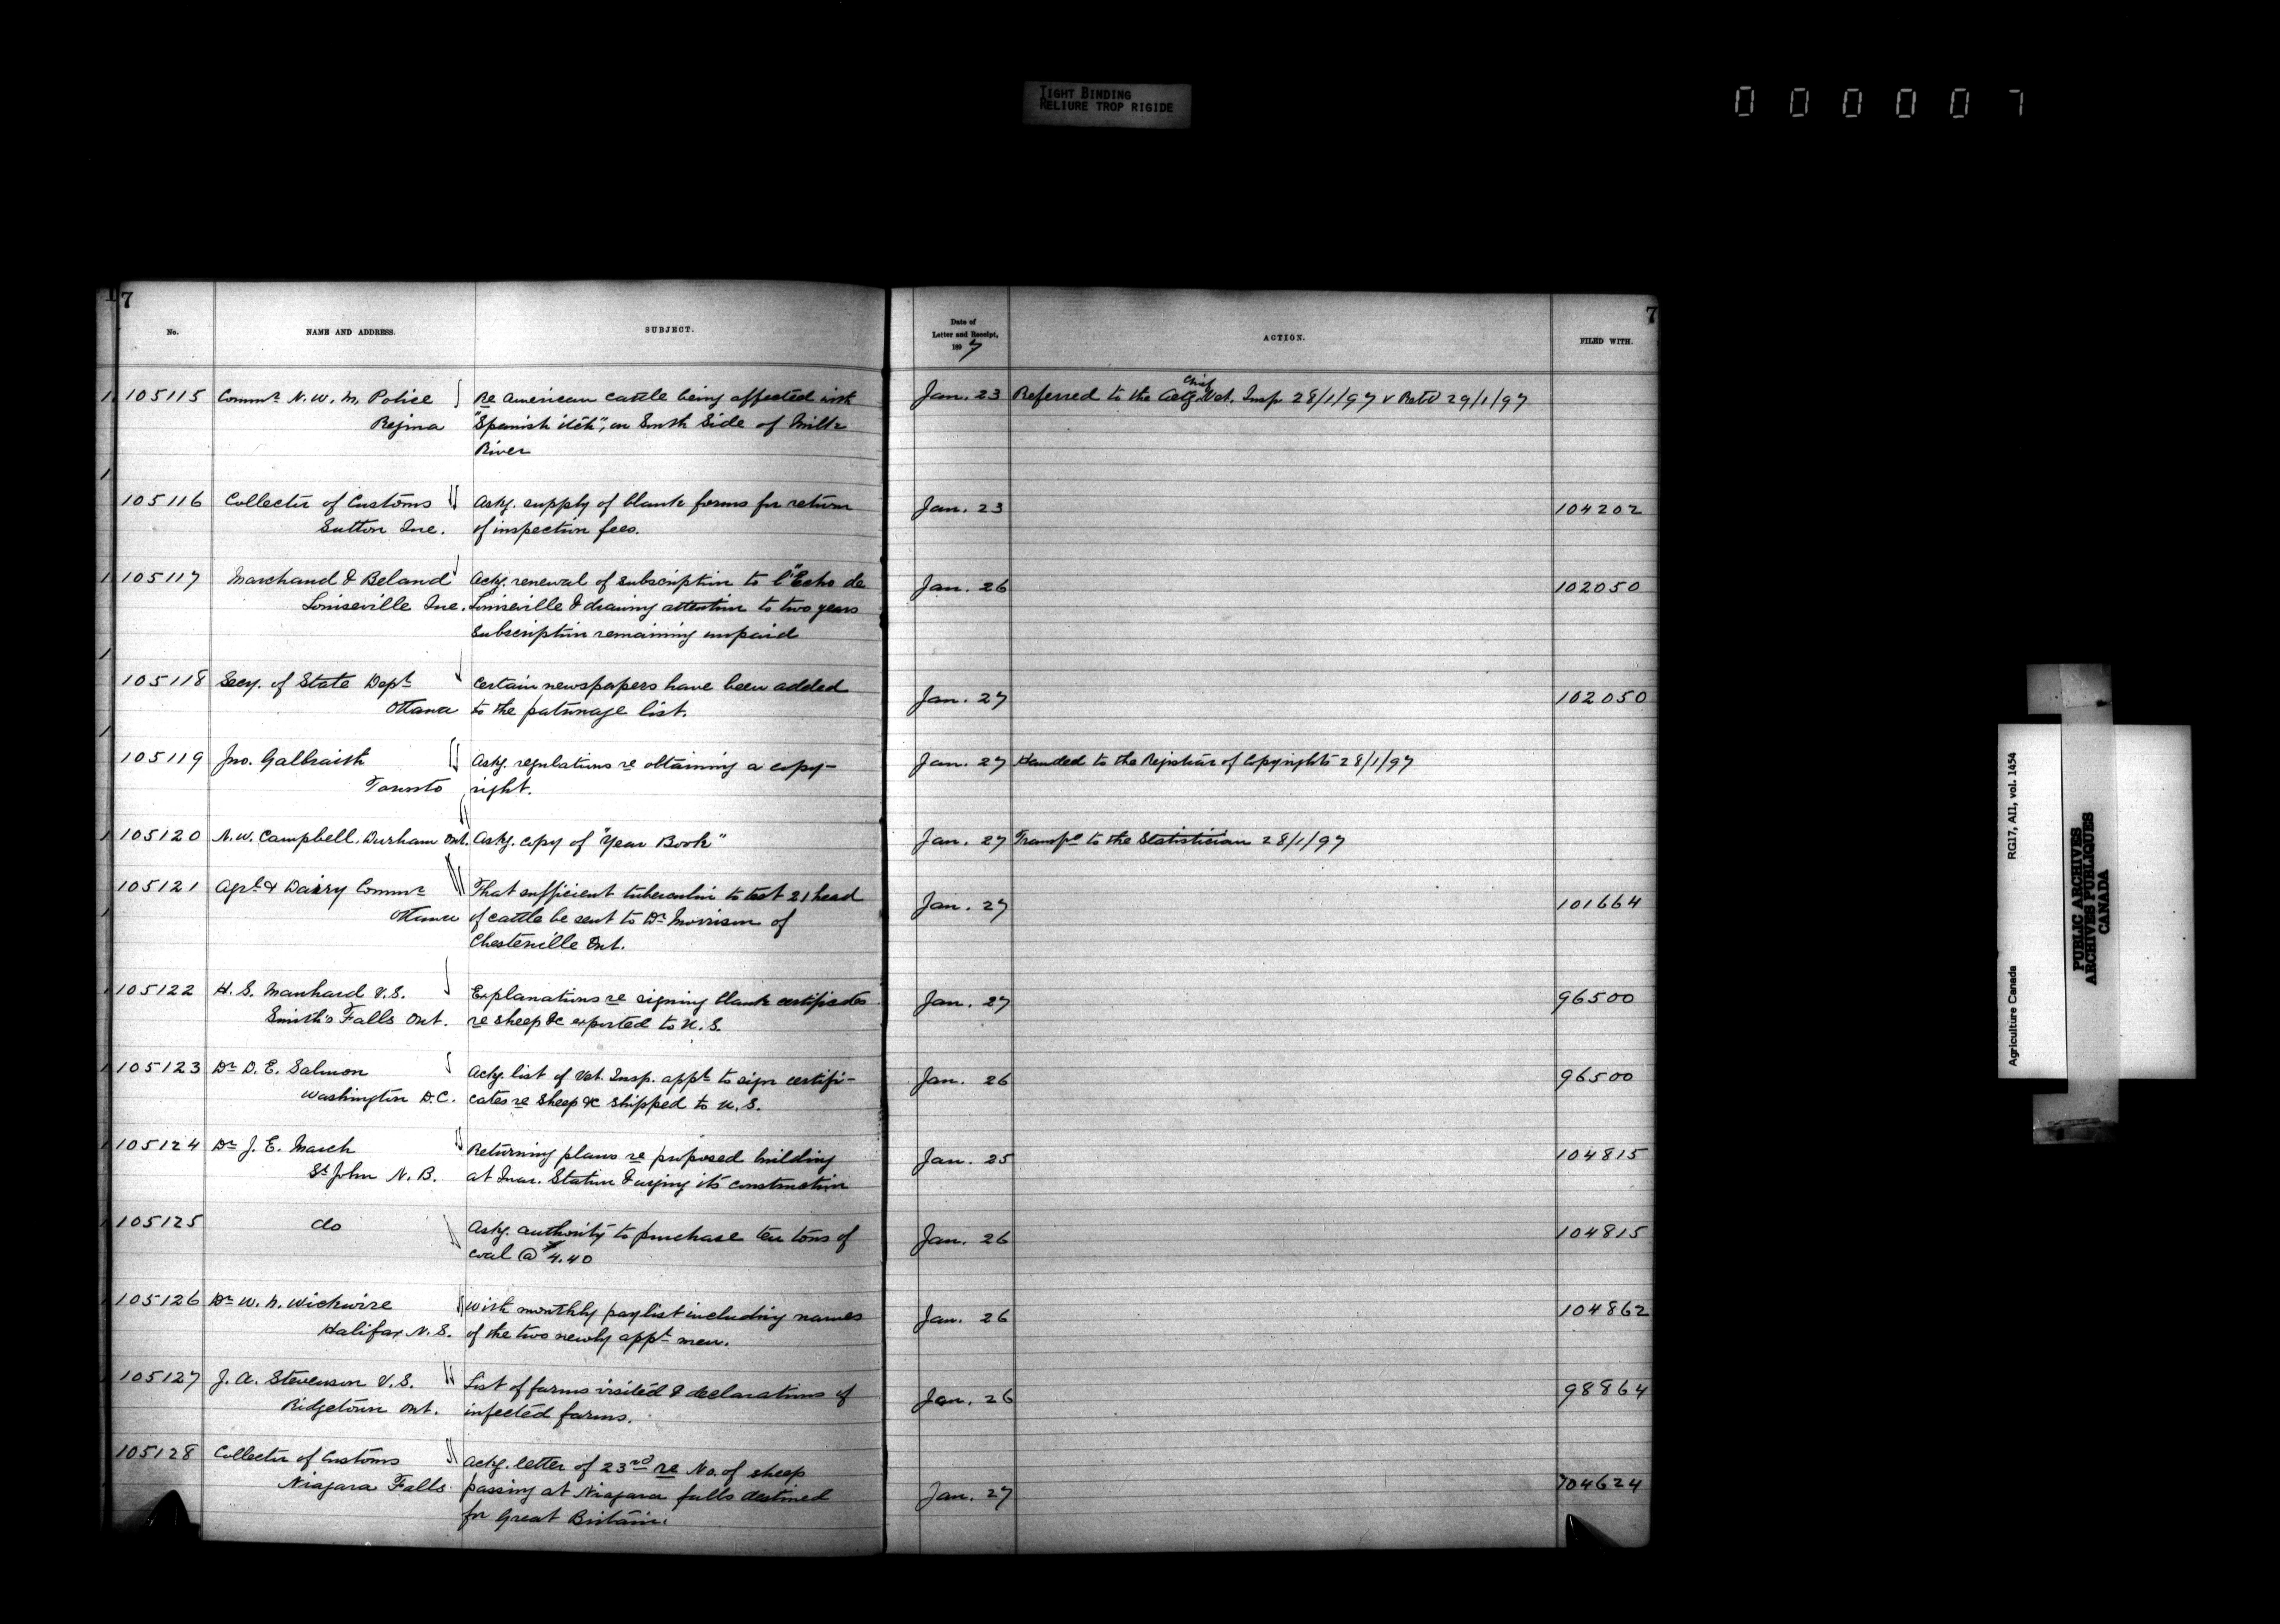 TIGHT BINDING
RELIURE TROP RIGIDE
000007
7
No.
NAME AND ADDRESS.
SUBJECT.
Date of
Letter and Receipt,
1897
ACTION.
FILED WITH.
7
105115 Commr N. W. M. Police Re American cattle being affected with Jan. 23 Referred to the Actg. Chief Vet. Insp 28/1/97 & Retd 29/1/97
Regina "Spanish itch", on South Side of Milk
River
105116 Collector of Customs Askg. supply of blank forms for return Jan. 23 104202
Sutton Que. of inspection fees.
105117 Marchand & Beland Ackg. renewal of subscription to l'"Echo de Jan. 26 102050
Louiseville Que. Louiseville & drawing attention to two years
subscription remaining unpaid
105118 Secy. of State Dept Certain newspapers have been added Jan. 27 102050
Ottawa to the patronage list.
105119 Jno. Galbraith Askg. regulations re obtaining a copy- Jan. 27 Handed to the Registrar of Copyrights 28/1/97
Toronto right.
105120 N. W. Campbell, Durham Ont. Askg. copy of "Year Book" Jan. 27 Transfd to the Statistician 28/1/97
105121 Agrl & Dairy Commr That sufficient tuberculin to test 21 head Jan. 27 101664
Ottawa of cattle be sent to Dr Morrison of
Chesterville Ont.
105122 H. S. Manhard V.S. Explanations re signing blank certificates Jan. 27 96500
Smith's Falls Ont. re sheep &c exported to U. S.
105123 Dr D. E. Salmon Ackg. list of Vet. Insp. appt to sign certifi- Jan. 26 96500
Washington D.C. cates re sheep &c shipped to U. S.
105124 Dr J. E. March Returning plans re proposed building Jan. 25 104815
St John N. B. at Quar. Station & urging its construction
105125 do Askg. authority to purchase ten tons of Jan. 26 104815
coal @ $4.40
105126 Dr W. N. Wickwire With monthly paylist including names Jan. 26 104862
Halifax N. S. of the two newly appt men.
105127 J. A. Stevenson V. S. List of farms visited & declarations of Jan. 26 98864
Ridgetown Ont. infected farms.
105128 Collector of Customs Ackg. letter of 23rd re No. of sheep Jan. 27 104624
Niagara Falls passing at Niagara falls destined
for Great Britain.
Agriculture Canada RG17, AII, vol. 1454
PUBLIC ARCHIVES
ARCHIVES PUBLIQUES
CANADA